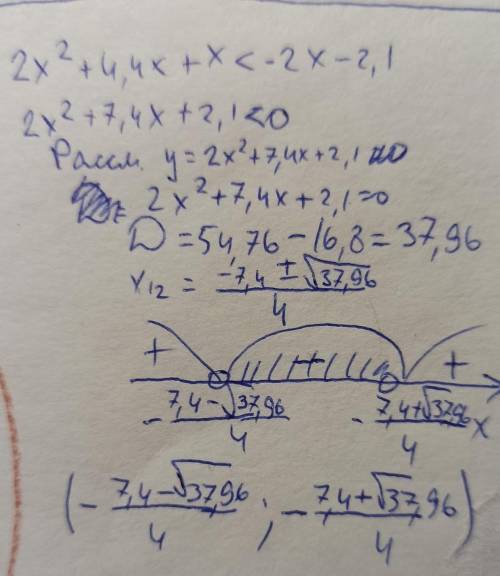 2x² + 4,4x + x < -2x - 2,1
2x² + 7,4x + 2,1 < 0
Рассм. y = 2x² + 7,4x + 2,1
2x² + 7,4x + 2,1 = 0
D = 54,76 - 16,8 = 37,96
x₁₂ = (-7,4 ± √37,96)/4
+ + +
-(7,4 - √37,96)/4 -(7,4 + √37,96)/4 x
(-(7,4 - √37,96)/4 ; -(7,4 + √37,96)/4)